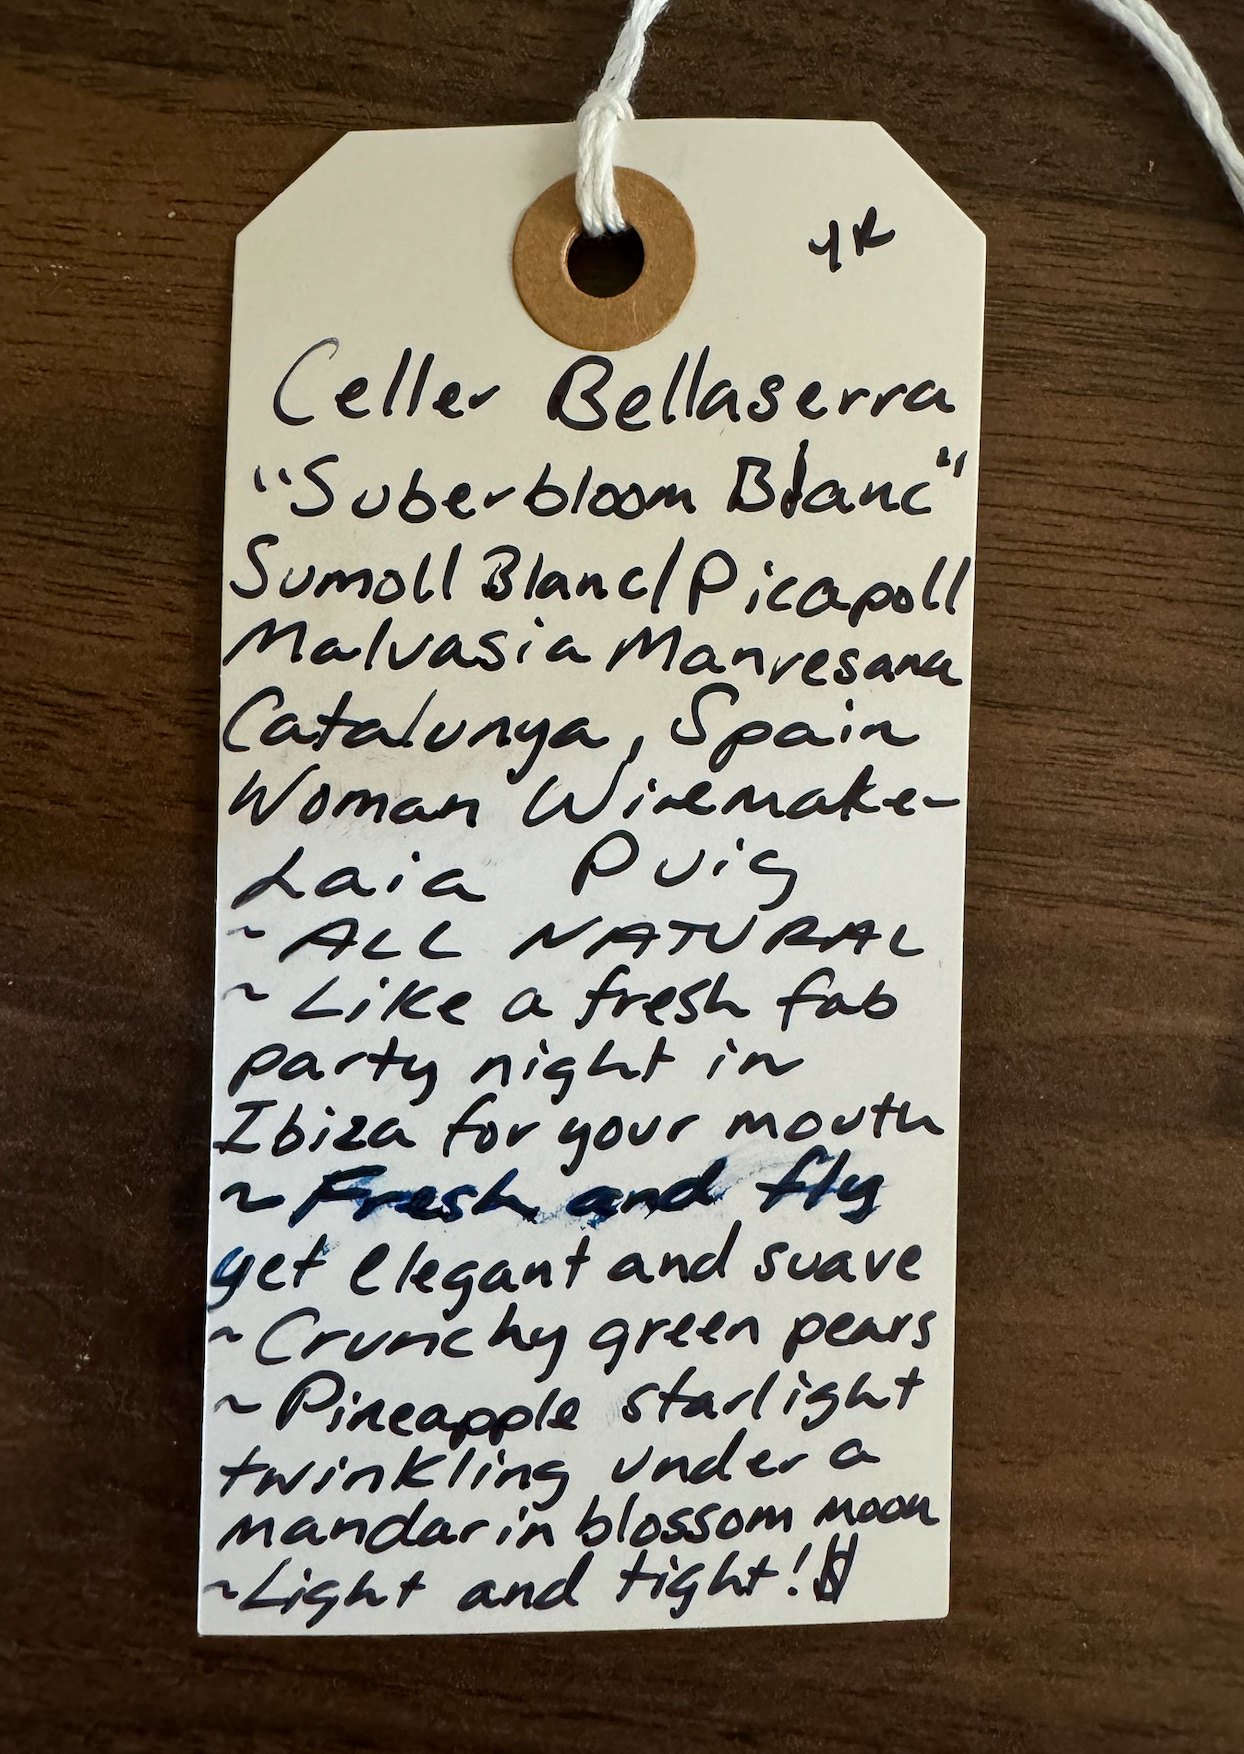 Celler Bellaserra
"Suberbloom Blanc"
Sumoll Blanc/Picapoll
Malvasia Manresana
Catalunya, Spain
Woman Winemaker
Laia Puig
~ ALL NATURAL
~ Like a fresh fab
party night in
Ibiza for your mouth
~ Fresh and fly
yet elegant and suave
~ Crunchy green pears
~ Pineapple starlight
twinkling under a
mandarin blossom moon
~Light and tight!